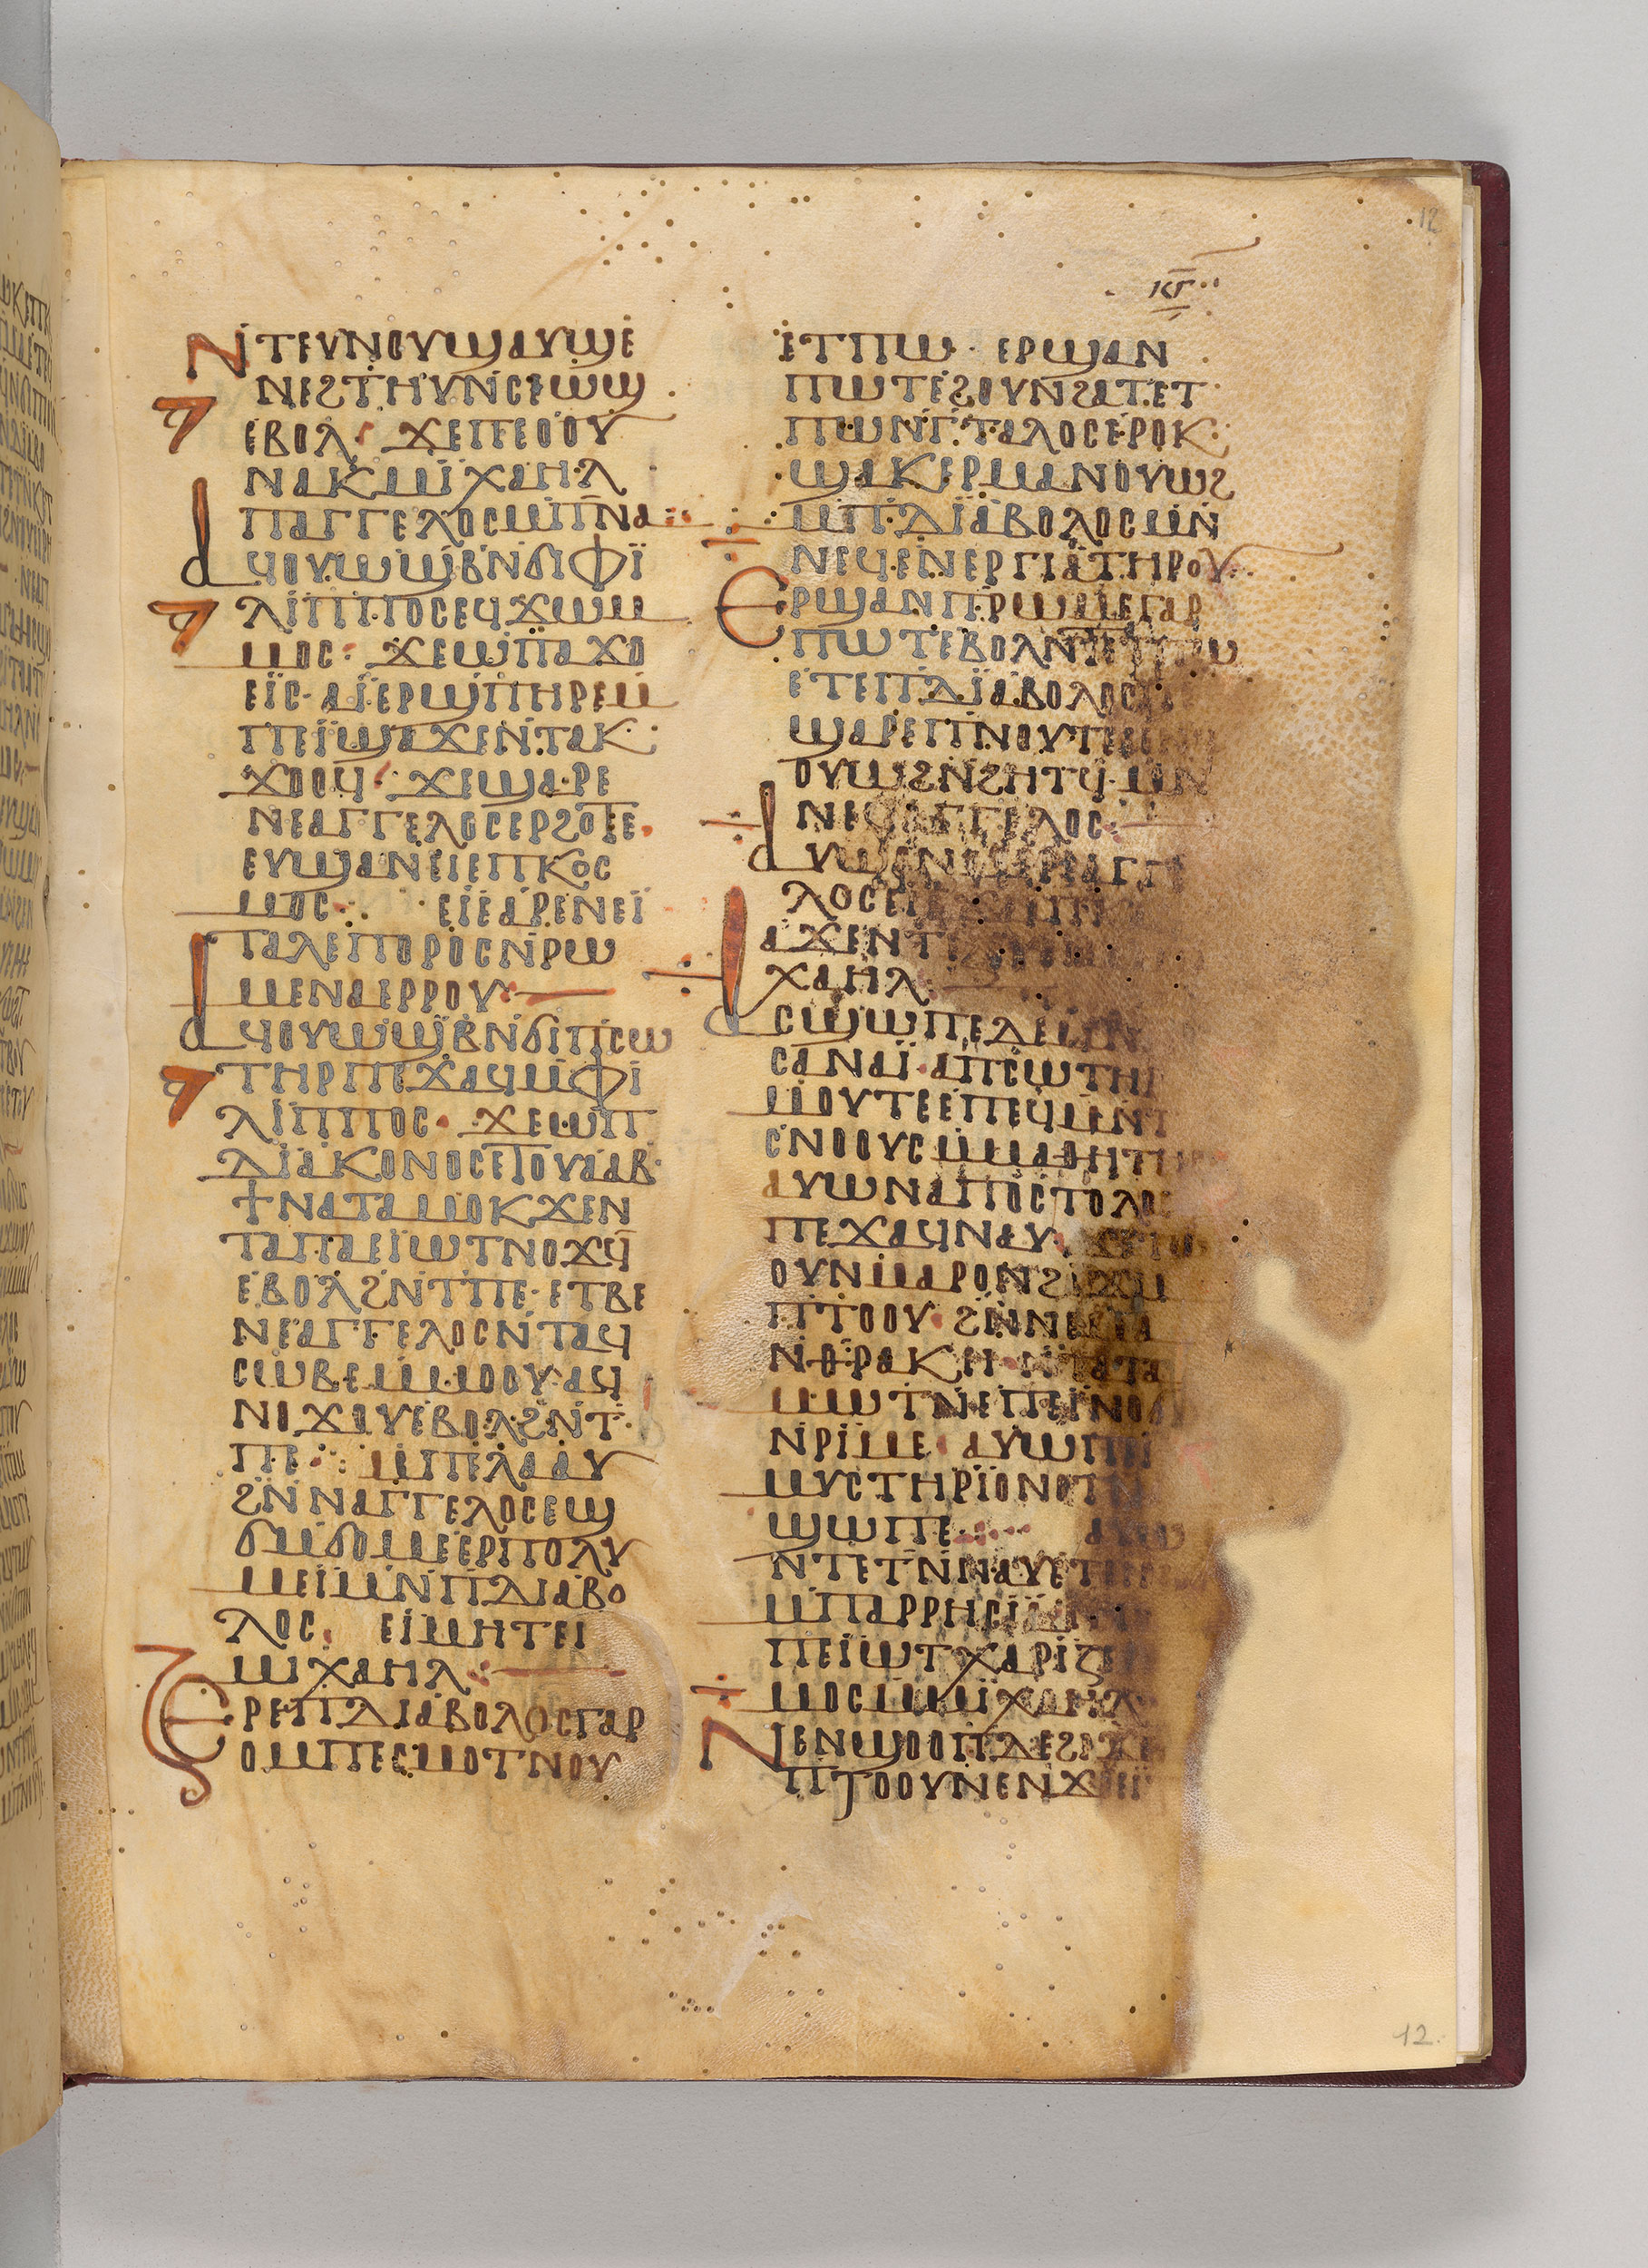 12
ⲕⲅ
ⲛⲧⲉⲩⲛⲟⲩϣⲁⲩϣⲉ
ⲛⲉϩⲧⲏⲩⲛⲥⲉⲱϣ
ⲉⲃⲟⲗ ϫⲉⲡⲉⲟⲟⲩ
ⲛⲁⲕⲙⲓⲭⲁⲏⲗ
ⲡⲁⲅⲅⲉⲗⲟⲥⲙⲡⲛⲁ
ⲁϥⲟⲩⲱϣⲃⲛϭⲓⲫⲓ
ⲗⲓⲡⲡⲟⲥⲉϥϫⲱⲙ
ⲙⲟⲥ ϫⲉⲱⲡⲁϫⲟ
ⲉⲓⲥ ⲁⲓⲉⲣϣⲡⲏⲣⲉⲙ
ⲡⲉⲓϣⲁϫⲉⲛⲧⲁⲕ
ϫⲟⲟϥ ϫⲉϣⲁⲣⲉ
ⲛⲉⲁⲅⲅⲉⲗⲟⲥⲉⲣϩⲟⲧⲉ
ⲉⲩϣⲁⲛⲉⲓⲉⲡⲕⲟⲥ
ⲙⲟⲥ ⲉⲓⲉⲁⲣⲉⲛⲉⲓ
ⲧⲁⲗⲉⲡⲟⲣⲟⲥⲛⲣⲱ
ⲙⲉⲛⲁⲉⲣⲣⲟⲩ
ⲁϥⲟⲩⲱϣⲃⲛϭⲓⲡⲥⲱ
ⲧⲏⲣⲡⲉϫⲁϥⲙⲫⲓ
ⲗⲓⲡⲡⲟⲥ ϫⲉⲱⲡ
ⲇⲓⲁⲕⲟⲛⲟⲥⲉⲧⲟⲩⲁⲁⲃ
ϯⲛⲁⲧⲁⲙⲟⲕϫⲉⲛ
ⲧⲁⲡⲁⲉⲓⲱⲧⲛⲟϫϥ
ⲉⲃⲟⲗϩⲛⲧⲡⲉ ⲉⲧⲃⲉ
ⲛⲉⲁⲅⲅⲉⲗⲟⲥⲛⲧⲁϥ
ⲥⲱⲃⲉⲙⲙⲟⲟⲩ ⲁϥ
ⲛⲟϫⲟⲩⲉⲃⲟⲗϩⲛⲧ
ⲡⲉ ⲙⲡⲉⲗⲁⲁⲩ
ϩⲛⲛⲁⲅⲅⲉⲗⲟⲥⲉϣ
ϭⲙϭⲟⲙⲉⲉⲣⲡⲟⲗⲩ
ⲙⲉⲓⲙⲛⲡⲇⲓⲁⲃⲟ
ⲗⲟⲥ ⲉⲓⲙⲏⲧⲉⲓ
ⲙⲓⲭⲁⲏⲗ
ⲉⲣⲉⲡⲇⲓⲁⲃⲟⲗⲟⲥⲅⲁⲣ
ⲟⲙⲡⲉⲥⲙⲟⲧⲛⲟⲩ
ⲉⲧⲡⲱ ⲉⲣϣⲁⲛ
ⲡⲱⲧⲉϩⲟⲩⲛϩⲁⲧⲉⲧ
ⲡⲱⲛⲅⲧⲁⲗⲟⲥⲉⲣⲟⲕ
ϣⲁⲕⲉⲣⲙⲁⲛⲟⲩⲱϩ
ⲙⲡⲇⲓⲁⲃⲟⲗⲟⲥⲙⲛ
ⲛⲉϥⲉⲛⲉⲣⲅⲓⲁⲧⲏⲣⲟⲩ
ⲉⲣϣⲁⲛⲡⲣⲱⲙⲉⲅⲁⲣ
ⲡⲱⲧⲉⲃⲟⲗⲙ
ⲉⲧⲉⲡⲇⲓⲁⲃⲟⲗⲟⲥ
ϣⲁⲣⲉⲡⲛⲟⲩⲧⲉ
ⲟⲩⲱϩⲛϩⲏⲧϥ ⲙⲛ
ⲛⲉϥⲁⲅⲅⲉⲗⲟⲥ
ⲗⲟⲥ
ϫⲉⲛⲧ
ⲭⲁⲏⲗ
ⲁⲥϣⲱⲡⲉⲇⲉ
ⲥⲁⲛⲁⲓ ⲁⲡⲥⲱⲧⲏ
ⲙⲟⲩⲧⲉⲉⲡⲉϥⲙⲛⲧ
ⲥⲛⲟⲟⲩⲥⲙⲙⲁⲑⲏⲧ
ⲁⲩⲱⲛⲁⲡⲟⲥⲧⲟⲗⲟⲥ
ⲡⲉϫⲁϥⲛⲁⲩ
ⲟⲩⲛⲙⲁⲣⲟⲛϩⲓϫⲙ
ⲡⲧⲟⲟⲩ ϩⲛⲛⲉ
ⲛⲑⲣⲁⲕⲏ ⲛⲧⲁⲧⲁ
ⲙⲱⲧⲛⲉⲡⲉⲓⲛⲟϭ
ⲛⲣⲓⲙⲉ ⲁⲩⲱⲡⲉⲓ
ⲙⲩⲥⲧⲏⲣⲓⲟⲛ
ϣⲱⲡⲉ ⲁⲩⲱ
ⲛⲧⲉⲧⲛⲛⲁⲩⲉ
ⲙⲡⲁⲣⲣⲏⲥⲓⲁ
ⲡⲉⲓⲱⲧⲭⲁⲣⲓⲍⲉ
ⲙⲟⲥⲙⲙⲓⲭⲁⲏⲗ
ⲛⲉⲛϣⲟⲟⲡⲇⲉϩⲓϫⲙ
ⲡⲧⲟⲟⲩⲛⲉⲛϫⲟⲉⲓ
12